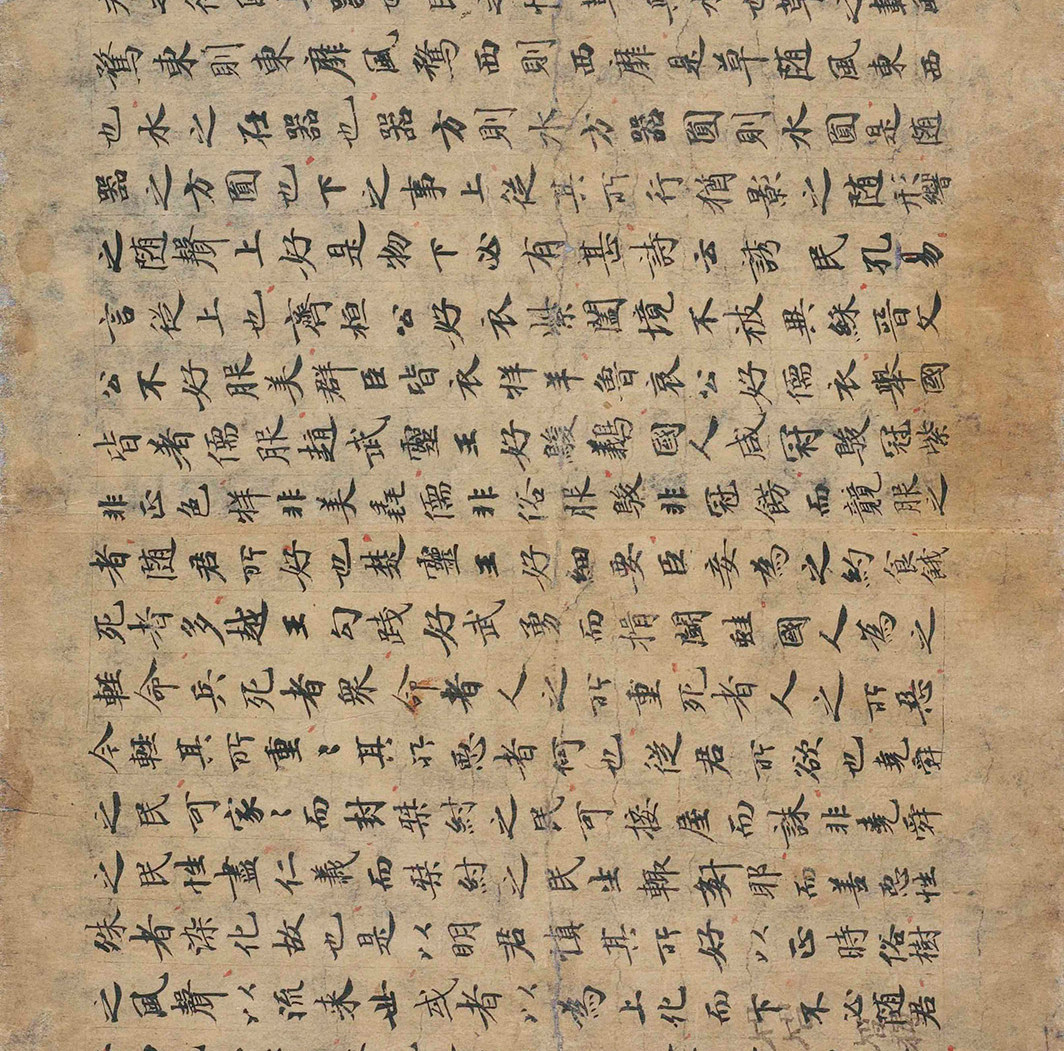 騖東則東靡風騖西則西靡是草随風東西
也水之在器也器方則水方器圓則水圓是随
器之方圓也下之事上従其所行猶影之随形響
之随聲上好是物下必有甚詩云誘民孔易
言從上也齊桓公好衣紫闔境不被異綵晉文
公不好服美群臣皆衣牂羊魯哀公好儒衣舉國
皆者儒服趙武靈王好鵔鸃國人咸冠鵔冠紫
非正色牂非美毳儒非俗服鵔非冠餝而競服之
者随君所好也楚靈王好細要臣妾為之約食餓
死者多越王勾踐好武勇而揖鬪蛙國人為之
輕命兵死者衆命者人之所重死者人之所惡
今輕其所重〻其所惡者何也従君所欲也堯舜
之民可家〻而封桀紂之民可接屋而誅非堯舜
之民性盡仁義而桀紂之民生輙姧耶而善惡性
殊者染化故也是以明君慎其所好以正時俗樹
之風聲以流来世或者以為上化而下不必随君